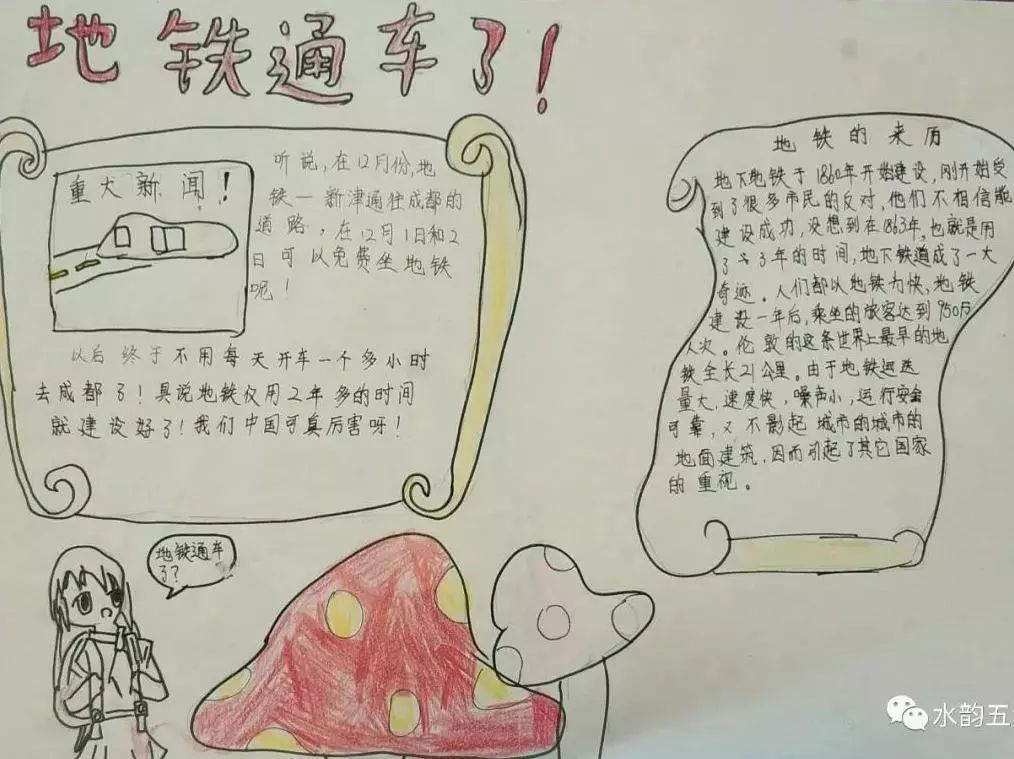 地铁通车了！
重大新闻！
听说，在12月份，地
铁一新津通往成都的
道路，在12月1日和2
日可以免费坐地铁
呢！
以后终于不用每天开车一个多小时
去成都了！具说地铁仅用2年多的时间
就建设好了！我们中国可真厉害呀！
地铁的来历
地下地铁于1860年开始建设，刚开始受
到了很多市民的反对，他们不相信能
建设成功，没想到在1863年，也就是用
了3年的时间，地下铁道成了一大
奇迹。人们都以地铁为快，地铁
建设一年后，乘坐的旅客达到950万
人次。伦敦的这条世界上最早的地
铁全长21公里。由于地铁运送
量大，速度快，噪声小，运行安全
可靠，又不影起城市的城市的
地面建筑，因而引起了其它国家
的重视。
地铁通车
了？
水韵五